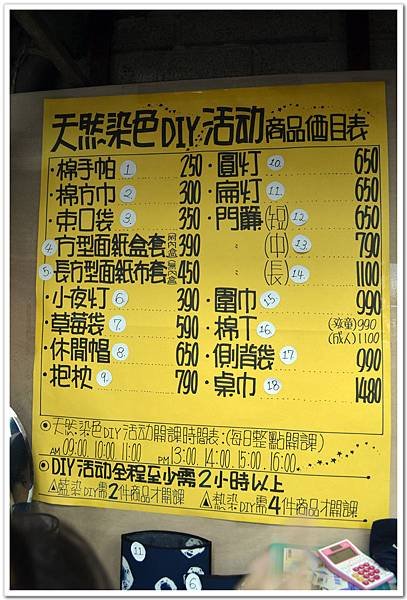 天然染色DIY活动商品価目表
·棉手帕 1. 250
·棉方巾 2. 300
·束口袋 3. 350
4. 方型面紙盒套 390
5. 長方型面紙布套 450
·小夜灯 6. 390
·草莓袋 7. 590
·休閒帽 8. 650
·抱枕 9. 790
·圓灯 10. 650
·扁灯 11. 650
·門簾(短) 12. 650
〃(中) 13. 790
〃(長) 14. 1100
·圍巾 15. 990
·棉T 16. (孩童)990
(成人)1100
·側背袋 17. 990
·桌巾 18. 1480
⊙天然染色DIY活动開課時間表:(每日整點開課)
AM 09:00. 10:00. 11:00 PM 13:00. 14:00. 15:00. 16:00.
⊙DIY活动全程至少需2小時以上
△藍染DIY需2件商品才開課 △熱染DIY需4件商品才開課
11.
6.